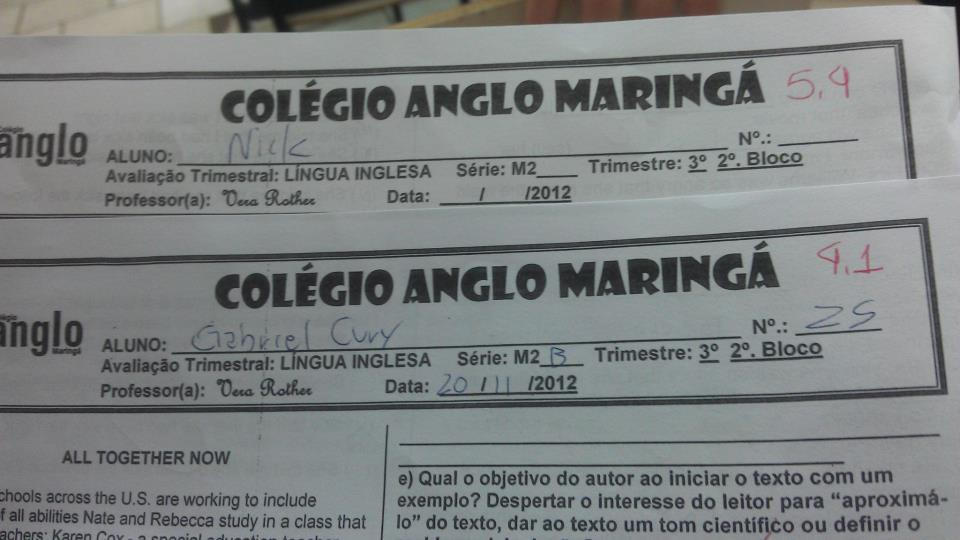 COLÉGIO ANGLO MARINGÁ 5,9
Colégio
anglo
Maringá
ALUNO: Nick Nº.:
Avaliação Trimestral: LÍNGUA INGLESA Série: M2___ Trimestre: 3º 2º. Bloco
Professor(a): Vera Rother Data: ___/___/2012
COLÉGIO ANGLO MARINGÁ 9,1
anglo
Maringá
ALUNO: Gabriel Cury Nº.: 25
Avaliação Trimestral: LÍNGUA INGLESA Série: M2 B Trimestre: 3º 2º. Bloco
Professor(a): Vera Rother Data: 20/11/2012
ALL TOGETHER NOW
chools across the U.S. are working to include
f all abilities Nate and Rebecca study in a class that
achers: Karen Cox - a special education teacher
e) Qual o objetivo do autor ao iniciar o texto com um
exemplo? Despertar o interesse do leitor para “aproximá-
lo” do texto, dar ao texto um tom científico ou definir o